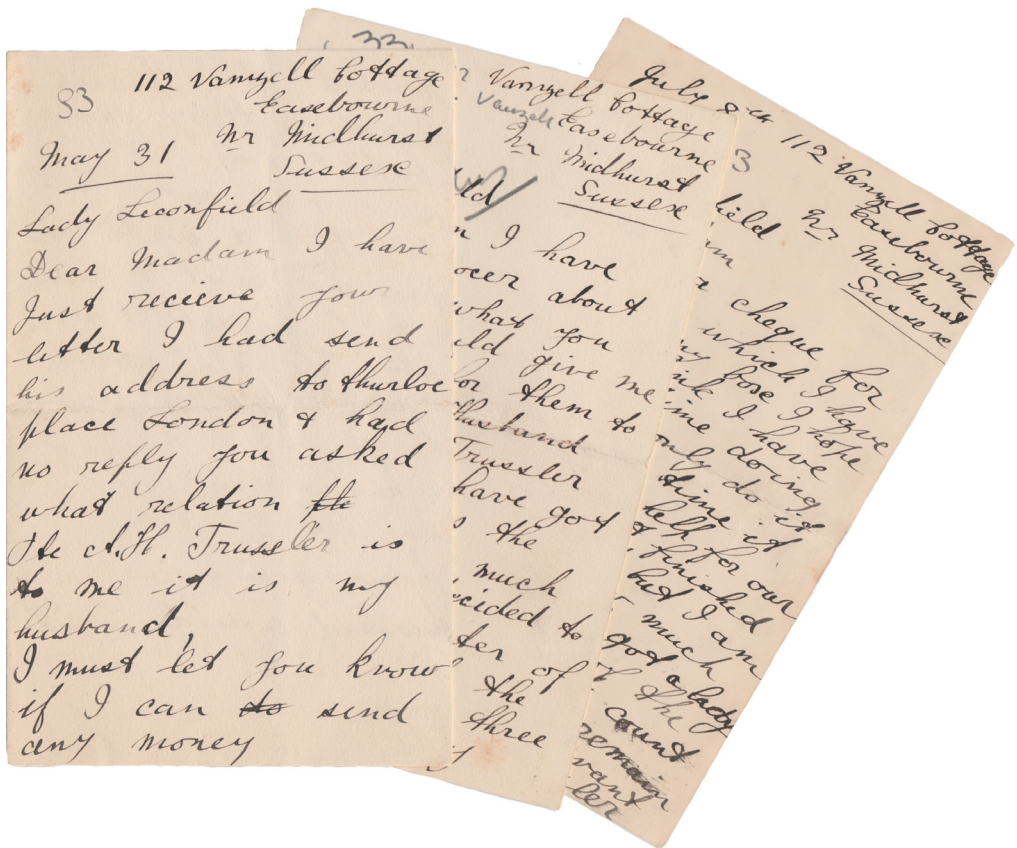 83
112 Vanzell Cottage
Easebourne
Nr Midhurst
Sussex
May 31
Lady Leconfield
Dear Madam I have
Just recieve your
letter I had send
his address to thurloe
place London & had
no reply you asked
what relation
the A.H. Trussler is
to me it is my
husband,
I must let you know
if I can to send
any money
33
2 Vanzell Cottage
Vanzell
Easebourne
Nr Midhurst
Sussex
ld
n I have
ocer about
what you
uld give me
for them to
Husband
Trussler
have got
s the
much
cided to
ter of
the
three
y
July 8th
112 Vanzell Cottage
3
Easebourne
Nr Midhurst
Sussex
field
am
a cheque for
which I have
my hose I hope
ink I have
ime doing
only do it
time it
help for our
t finished
but I am
r much
got a lady
of the
count
remain
vant
ler